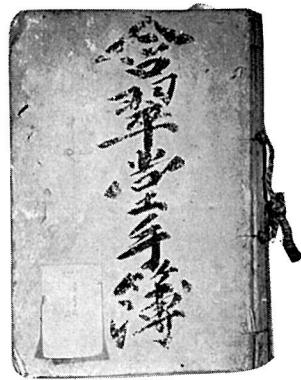 含翠堂手簿